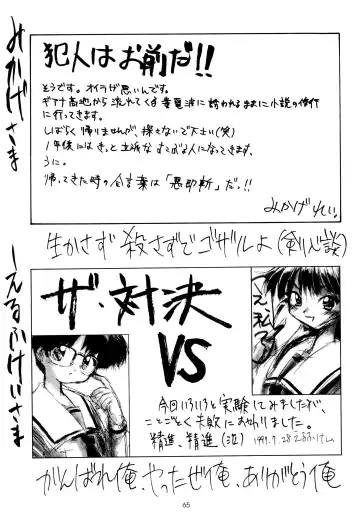 みかげさま
犯人はお前だ!!
そうです。オイラが悪いんです。
ギアナ高地から流れてくる毒電波に誘われるままに小説の修行
に行ってきます。
しばらく帰りませんが、探さないで下さい(笑)
1年後にはきっと立派なすてぷる人になってきます。
うに。
帰ってきた時の合言葉は「悪即斬」だ!!
みかげれい
生かさず殺さずでゴザルよ(剣心談)
ーえるふけいさま
ザ・対決
VS
え、私?
今回いろいろと実験してみましたが、
ことごとく失敗におわりました。
精進、精進(泣)
1997.7.28 えるふけい
がんばれ俺、やったぜ俺、ありがとう俺
65